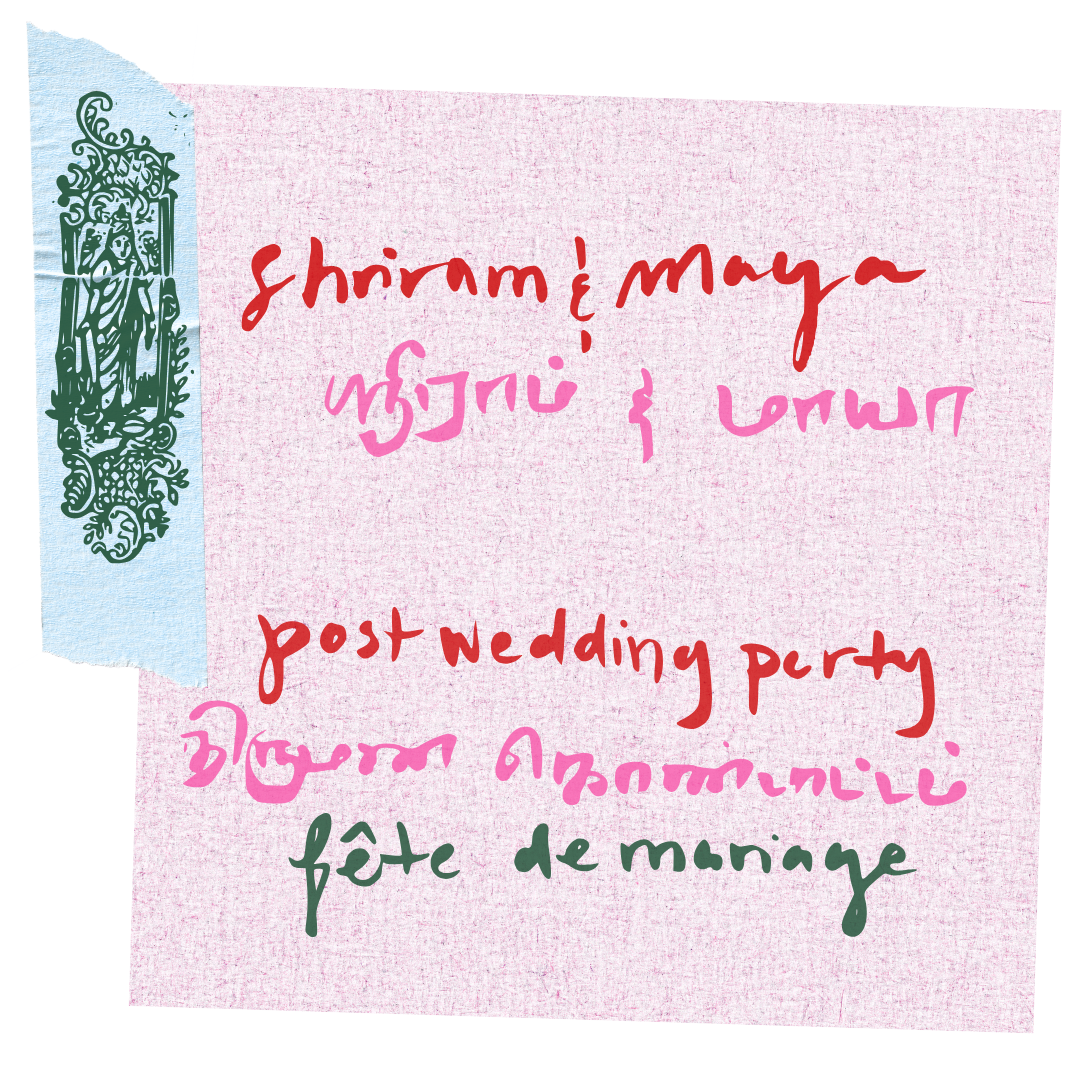 Shriram & Maya
ஸ்ரீராம் & மாயா
post wedding party
திருமண கொண்டாட்டம்
fête de mariage